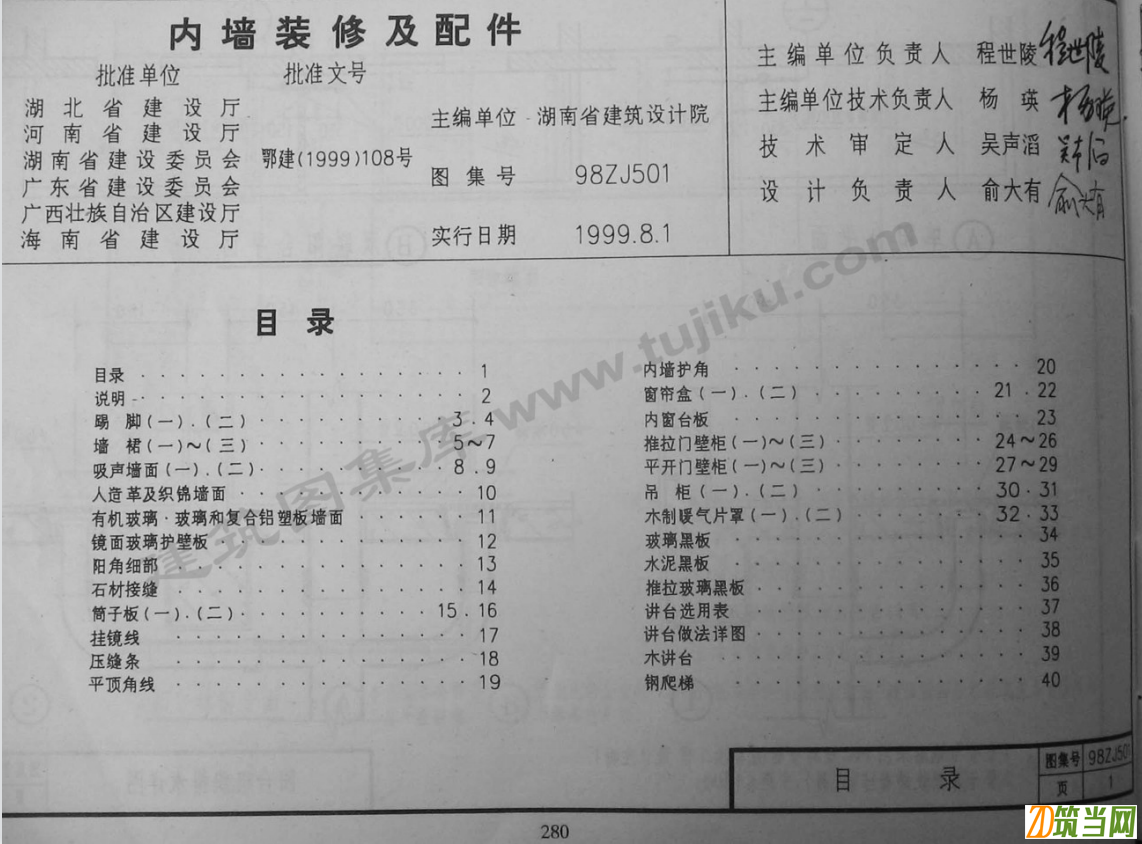 内墙装修及配件
批准单位 批准文号
湖北省建设厅
河南省建设厅
湖南省建设委员会 鄂建(1999)108号
广东省建设委员会
广西壮族自治区建设厅
海南省建设厅
主编单位 湖南省建筑设计院
图集号 98ZJ501
实行日期 1999.8.1
主编单位负责人 程世陵 程世陵
主编单位技术负责人 杨瑛
技术审定人 吴声滔
设计负责人 俞大有 俞大有
目录
目录 1
说明 2
踢脚(一).(二) 3.4
墙裙(一)~(三) 5~7
吸声墙面(一).(二) 8.9
人造革及织锦墙面 10
有机玻璃·玻璃和复合铝塑板墙面 11
镜面玻璃护壁板 12
阳角细部 13
石材接缝 14
筒子板(一).(二) 15.16
挂镜线 17
压缝条 18
平顶角线 19
内墙护角 20
窗帘盒(一).(二) 21.22
内窗台板 23
推拉门壁柜(一)~(三) 24~26
平开门壁柜(一)~(三) 27~29
吊柜(一).(二) 30.31
木制暖气片罩(一).(二) 32.33
玻璃黑板 34
水泥黑板 35
推拉玻璃黑板 36
讲台选用表 37
讲台做法详图 38
木讲台 39
钢爬梯 40
建筑图集库 www.tujiku.com
目录 图集号 98ZJ501
页 1
280
筑当网